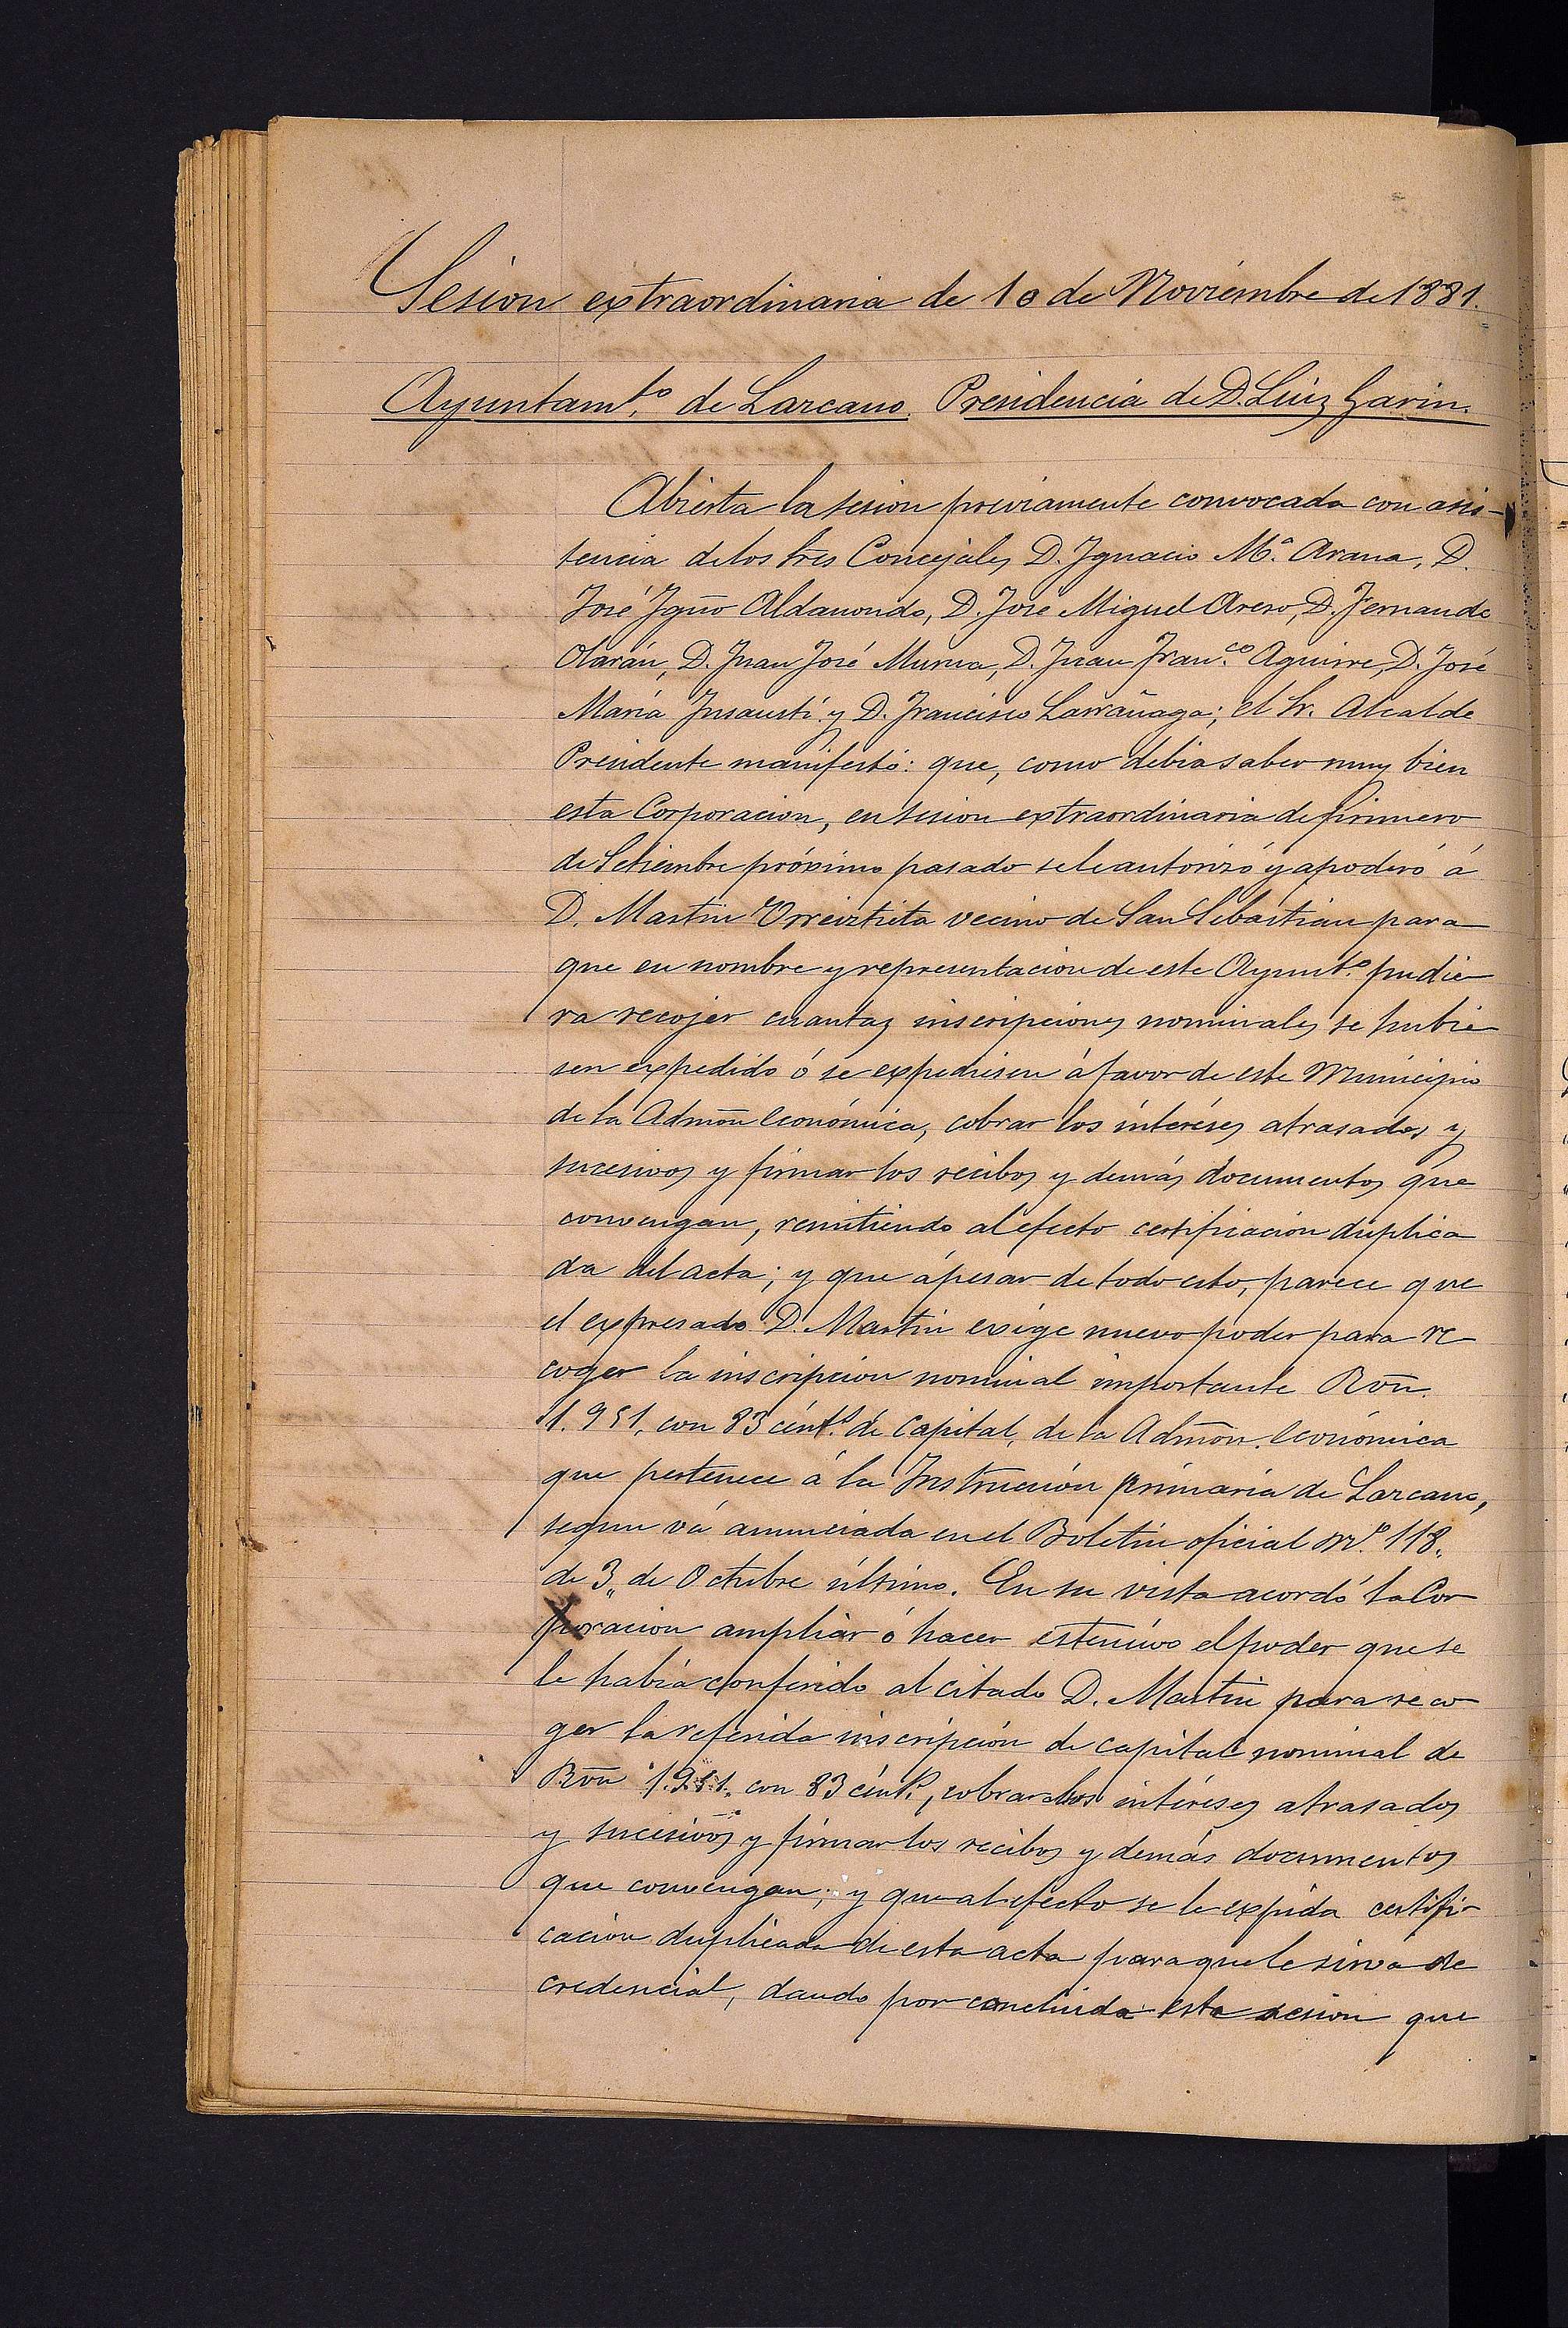 Sesion extraordinaria de 10 de Noviembre de 1881.
Ayuntam.to de Lazcano. Presidencia de D. Luiz Garin.
Abierta la sesion previamente convocada con asis-
tencia de los tres Concejales D. Ygnacio M.ª Arana, D.
José Ygño Aldanondo, D. José Miguel Areso, D. Fernando
Olarán, D. Juan José Murua, D. Juan Fran.co Aguirre, D. José
María Ynsausti y D. Francisco Larrañaga; el Sr. Alcalde
Presidente manifestó: que, como debia saber muy bien
esta Corporacion, en sesion extraordinaria de primero
de Setiembre próximo pasado se le autorizó y apoderó á
D. Martin Orreiztieta vecino de San Sebastián para
que en nombre y representacion de este Ayunt.º pudie
ra recojer cuantas inscripciones nominales se hubie
sen expedido ó se expidiesen á favor de este Municipio
de la Admōn económica, cobrar los intereses atrasados y
sucesivos y firmar los recibos y demás documentos que
convengan, remitiendo al efecto certificación duplica
da del acta; y que ápesar de todo esto, parece que
el expresado D. Martin exige nuevo poder para re-
coger la inscripcion nominal importante Rvn.
1.951, con 83 cént.s de capital, de la Admōn. económica
que pertenece á la Instrucción primaria de Lazcano,
segun vá anunciada en el Boletin oficial nº. 118,
de 3,, de Octubre último. En su vista acordó la Cor
poracion ampliar ó hacer estensivo el poder que se
le había conferido al citado D. Martin para reco-
ger la referida inscripción de capital nominal de
Rvn 1.951, con 83 cént.s, cobrar los intéreses atrasados
y sucesivos y firmar los recibos y demás documentos
que convengan; y que al efecto se le expida certifi-
cación duplicada de esta acta para que le sirva de
credencial, dando por concluida esta sesion que